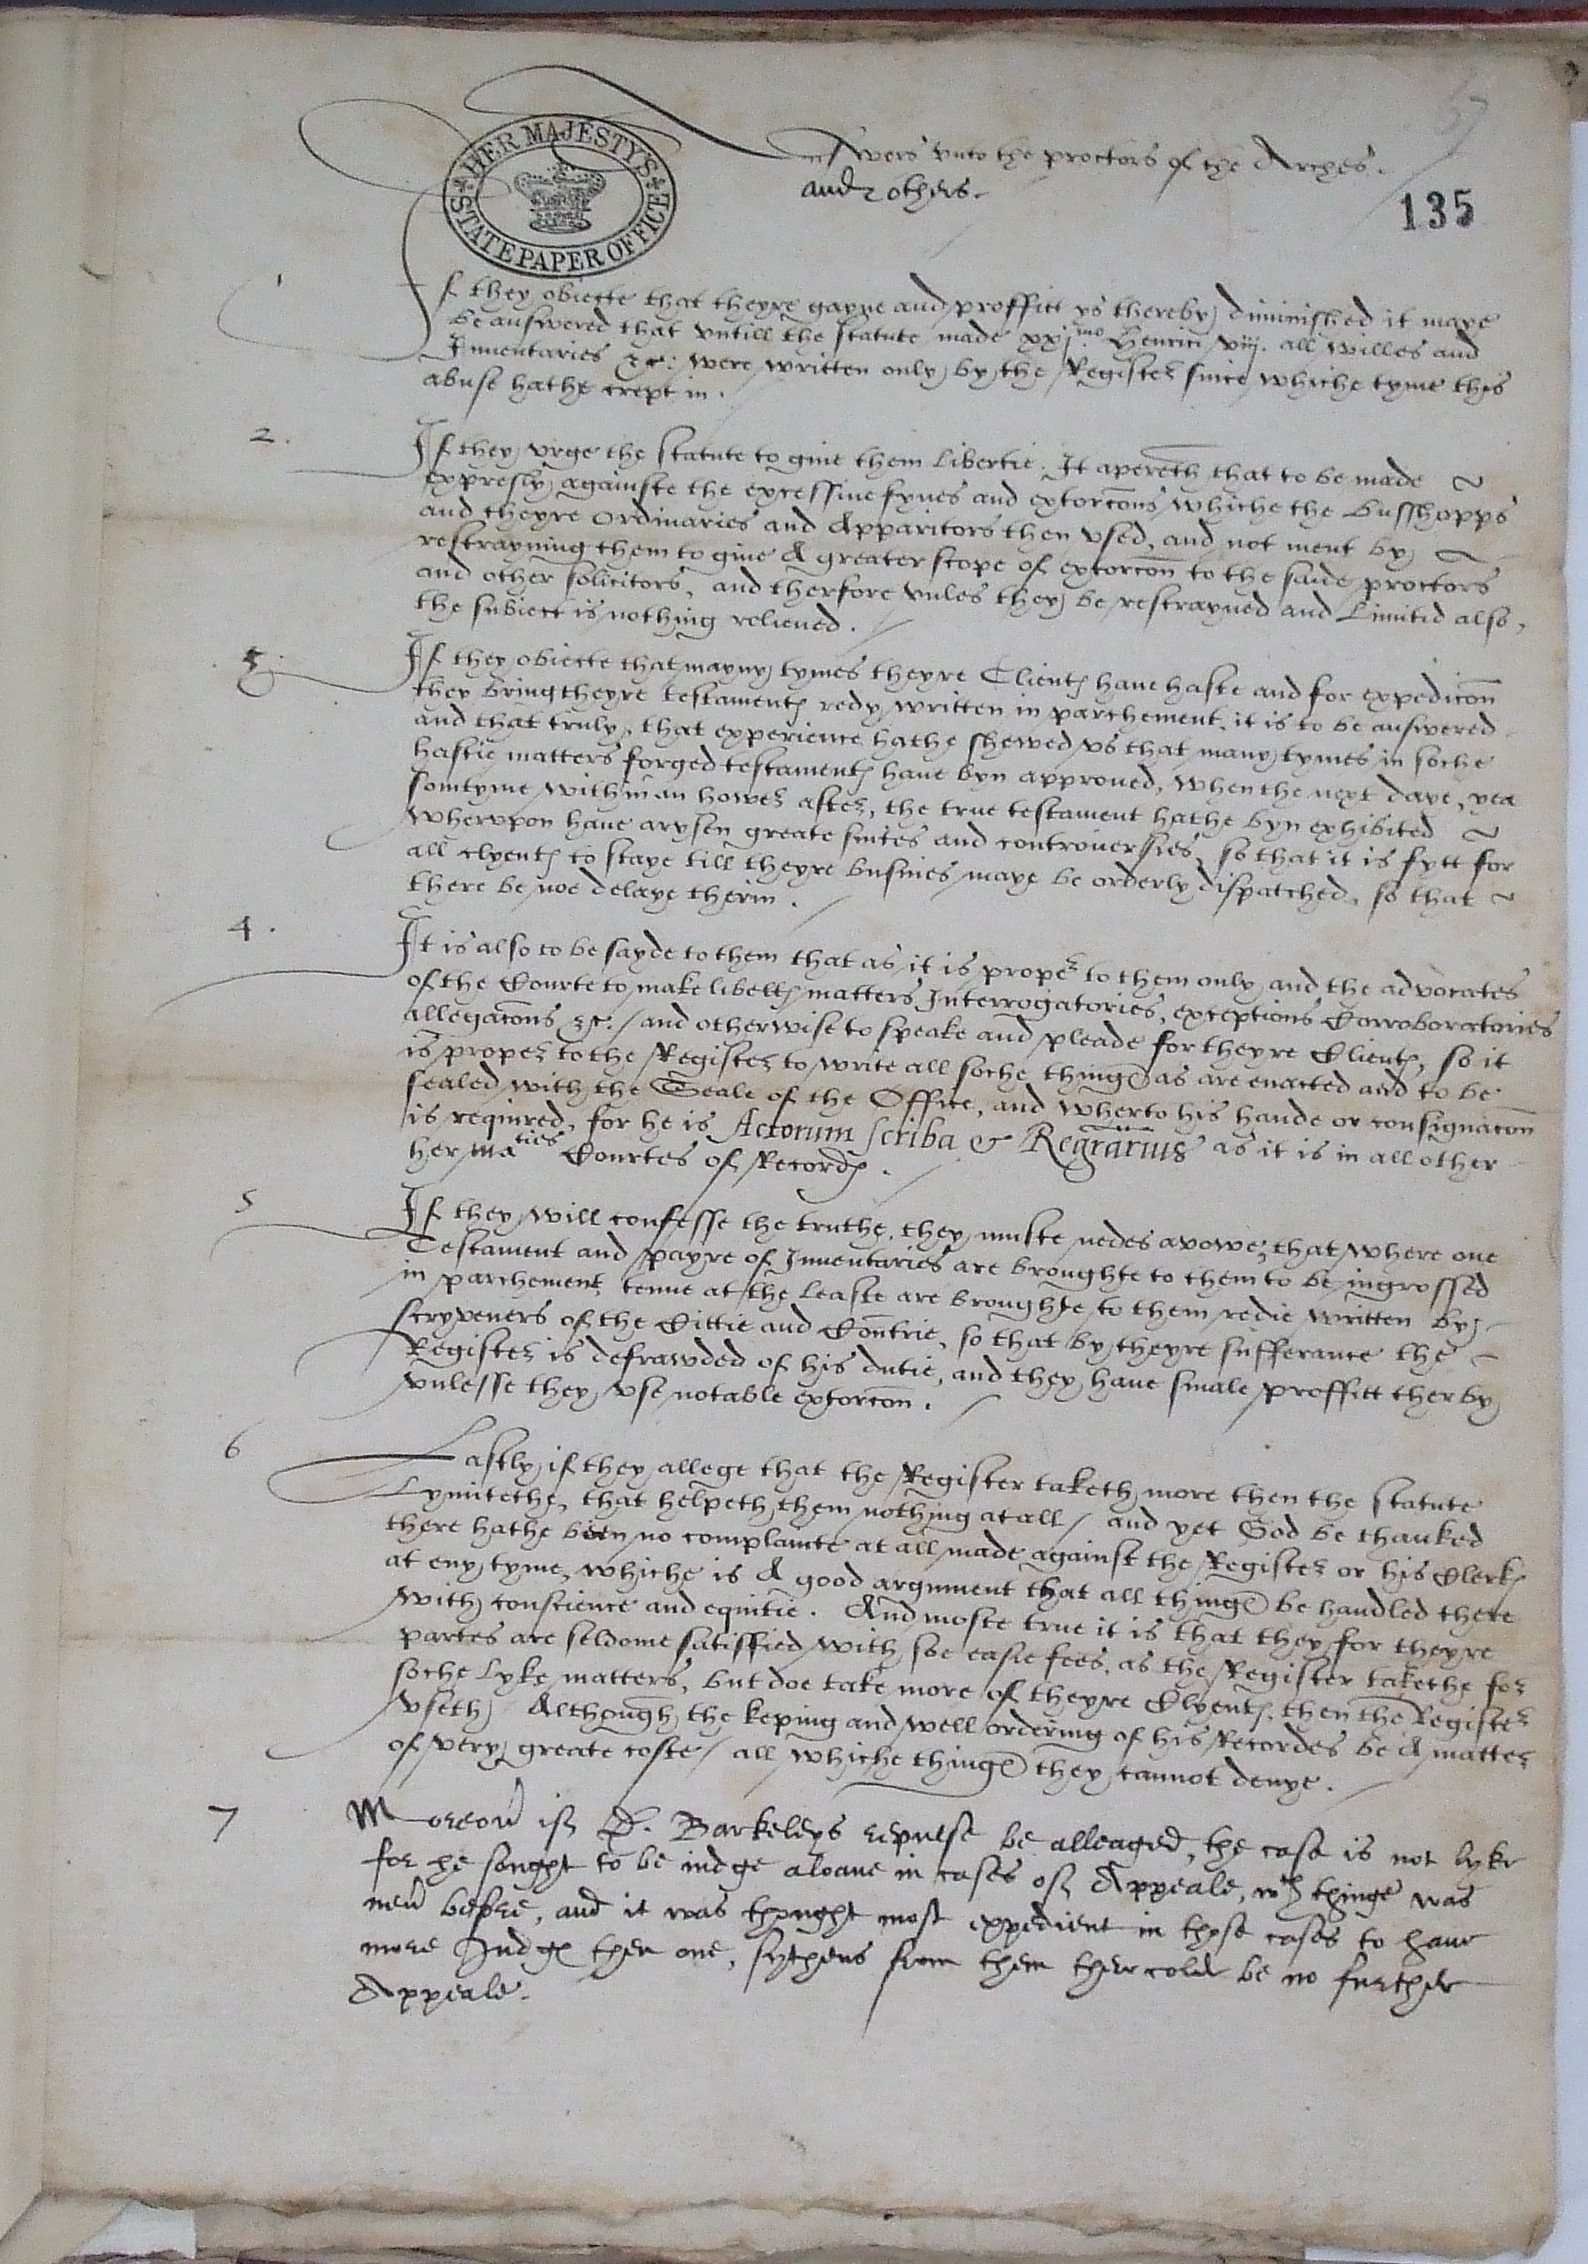 Answers vnto the proctors of the Arches.
and others.
HER MAJESTY'S STATE PAPER OFFICE
135
1 If they obiecte that theyre gayne and proffitt ys thereby diminished it maye
be answered that vntill the statute made xxjmo. Henrici viij. all willes and
Inuentaries &c: were written only by the Register since whiche tyme this
abuse hathe crept in.
2. If they vrge the statute to giue them libertie. It apereth that to be made
expresly againste the excessiue fynes and extorcons whiche the busshopps
and theyre Ordinaries and Apparitors then vsed, and not ment by
restrayning them to giue A greater scope of extorcon to the saide proctors
and other solicitors, and therfore vnles they be restrayned and Limitid also,
the subiect is nothing relieued.
3. If they obiecte that mayny tymes theyre Clientes haue haste and for expedicon
they bring theyre testamentes redy written in parchement, it is to be answered
and that truly, that experience hathe shewed vs that many tymes in soche
hastie matters forged testamentes haue byn approued, when the next daye, yea
somtyme within an hower after, the true testament hathe byn exhibited
whervpon haue arysen greate suites and controuersies, so that it is fytt for
all clyentes to staye till theyre busines maye be orderly dispatched, so that
there be noe delaye therin.
4. It is also to be sayde to them that as it is proper to them only and the aduocates
of the Courte to make libelles matters Interrogatories, exceptions Corroboratories
allegacons &c. and otherwise to speake and pleade for theyre Clientes, so it
is proper to the Register to write all soche thinges as are enacted and to be
sealed with the Seale of the Office, and wherto his hande or consignacon
is required, for he is Actorum scriba & Regrarius as it is in all other
her Maties Courtes of Recordes.
5 If they will confesse the truthe, they muste nedes avowe, that where one
Testament and payre of Inuentaries are broughte to them to be ingrossed
in parchement, tenne at the leaste are broughte to them redie written by
scryveners of the Cittie and Contrie, so that by theyre sufferance the
Register is defrawded of his dutie, and they haue smale proffitt therby
vnlesse they vse notable extorcon.
6 Lastly if they allege that the Register taketh more then the statute
Lymitethe, that helpeth them nothing at all / and yet God be thanked
there hathe been no complainte at all made against the Register or his Clerkes
at eny tyme, whiche is A good argument that all thinges be handled there
with conscience and equitie. And moste true it is that they for theyre
partes are seldome satisfied with soe easie fees, as the Register takethe for
soche lyke matters, but doe take more of theyre Clyentes, then the Register
vseth. Although the keping and well ordering of his Recordes be A matter
of very greate coste / all whiche thinges they cannot denye.
7 Moreouer if D. Barkeleys repulse be alleaged, the case is not lyke
for he sought to be iudge aloane in cases of Appeale, wch thinge was
neuer before, and it was thought most expedient in those cases to haue
more Iudges then one, sythens from them ther colde be no further
Appeale.